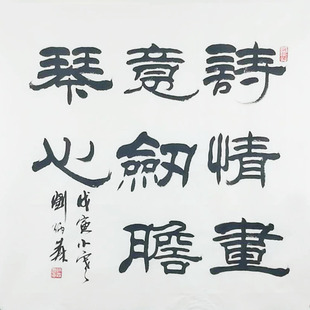 詩情畫
意劍膽
琴心
戊寅小寒
劉炳森